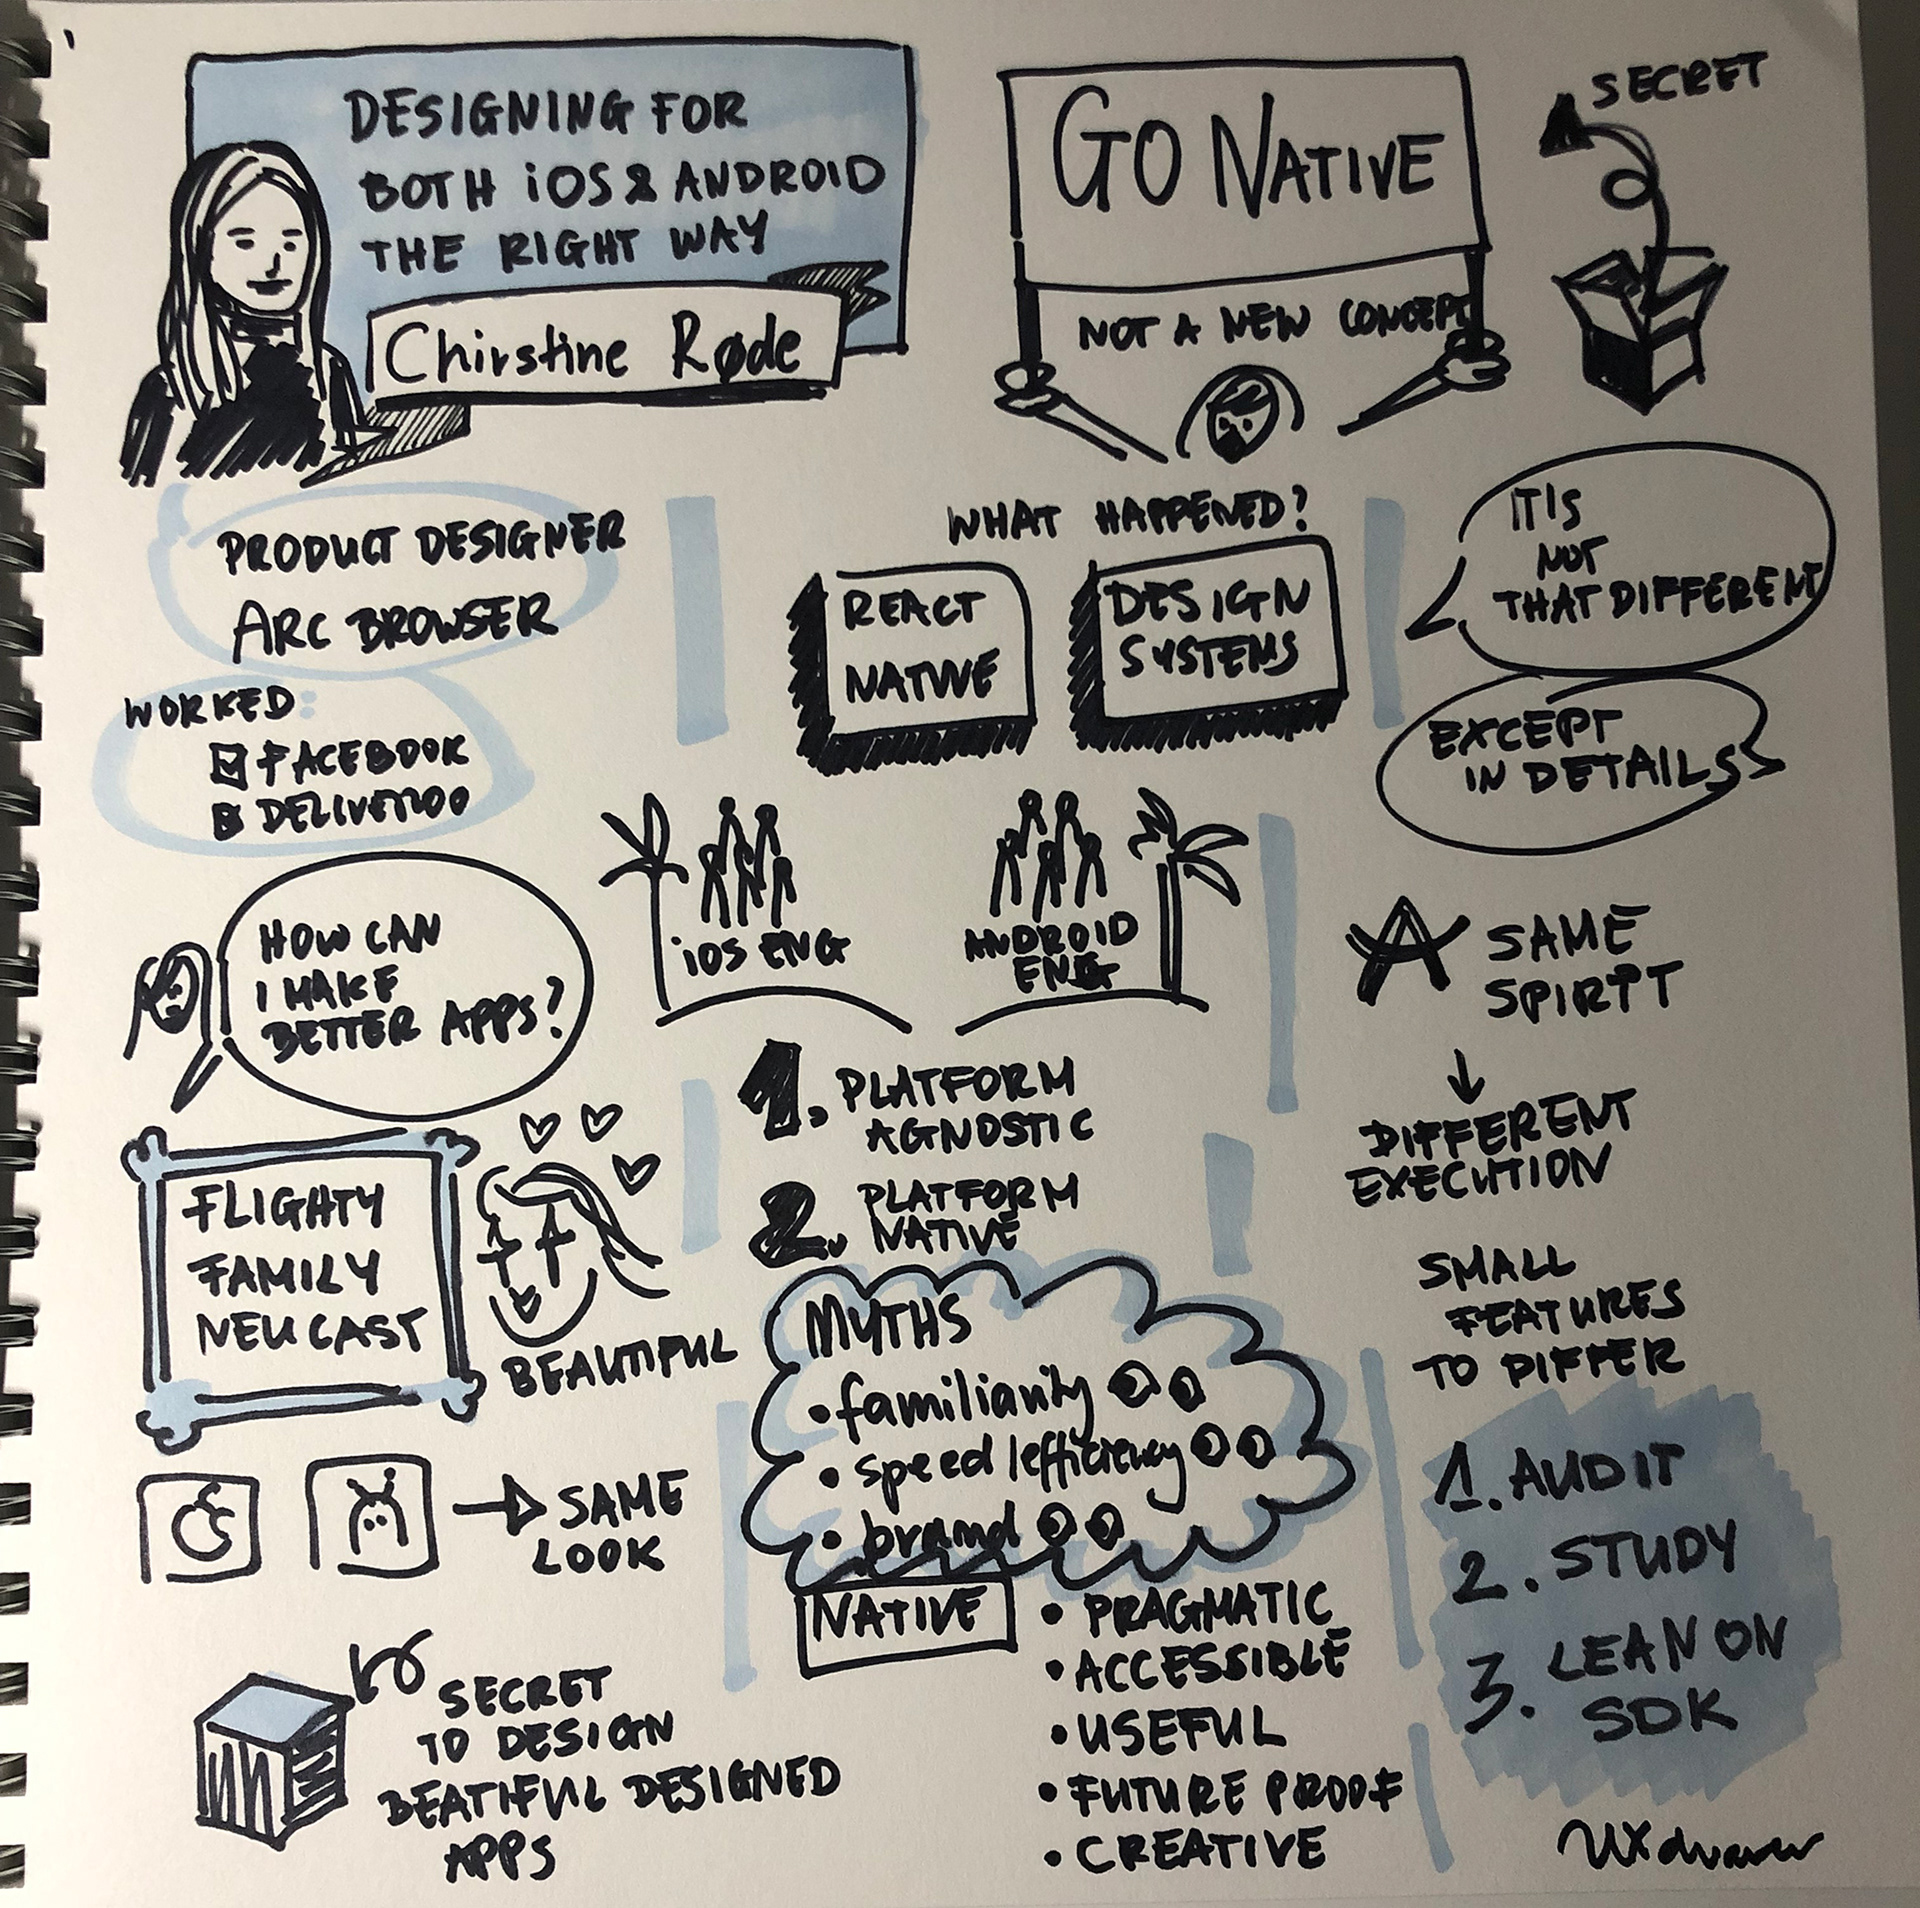 DESIGNING FOR
BOTH iOS & ANDROID
THE RIGHT WAY
Chirstine Røde
PRODUCT DESIGNER
ARC BROWSER
WORKED:
FACEBOOK
DELIVEROO
HOW CAN
I MAKE
BETTER APPS?
FLIGHTY
FAMILY
NEUCAST
BEAUTIFUL
SAME
LOOK
SECRET
TO DESIGN
BEATIFUL DESIGNED
APPS
GO NATIVE
NOT A NEW CONCEPT
SECRET
WHAT HAPPENED?
REACT
NATIVE
DESIGN
SYSTEMS
iOS ENG
ANDROID
ENG
1. PLATFORM
AGNOSTIC
2. PLATFORM
NATIVE
MYTHS
• familiarity
• speed/efficiency
• brand
NATIVE
• PRAGMATIC
• ACCESSIBLE
• USEFUL
• FUTURE PROOF
• CREATIVE
IT IS
NOT
THAT DIFFERENT
EXCEPT
IN DETAILS
SAME
SPIRIT
DIFFERENT
EXECUTION
SMALL
FEATURES
TO DIFFER
1. AUDIT
2. STUDY
3. LEAN ON
SDK